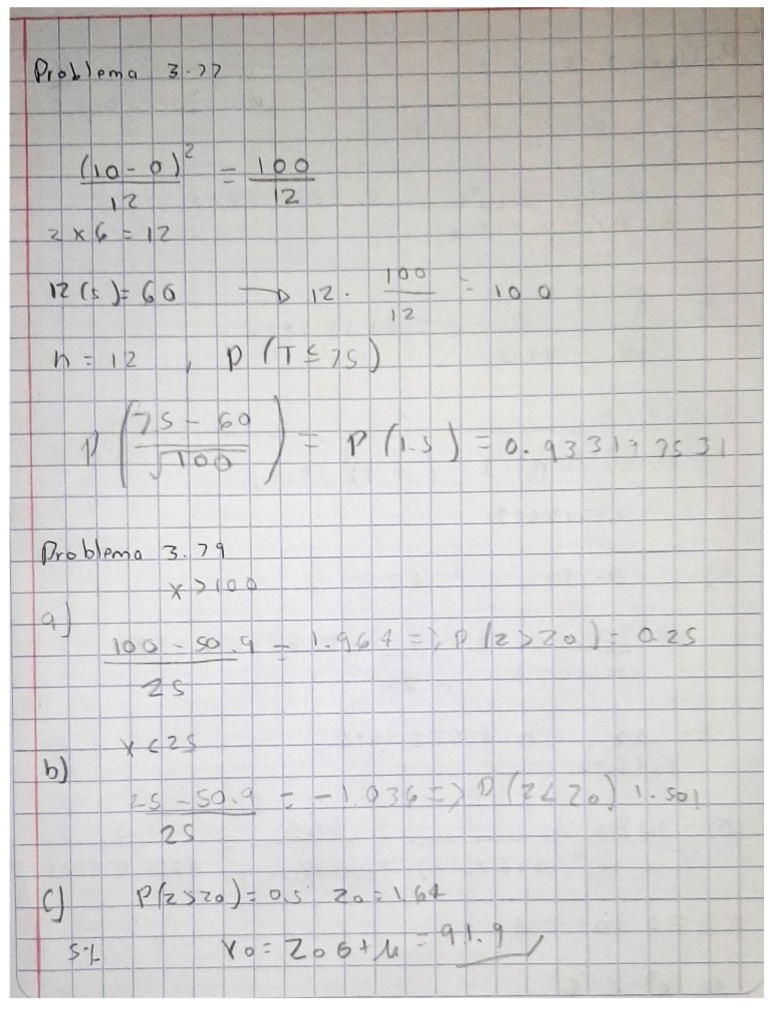 Problema 3.77
(10-0)² / 12 = 100 / 12
2 x 6 = 12
12(5)=60 → 12 · 100/12 = 100
n = 12 , P (T ≤ 75)
P (75 - 60 / √100) = P (1.5) = 0.9331927531
Problema 3.79
x > 100
a)
100 - 50.9 / 25 = 1.964 => P (z > z0) = 0.25
x < 25
b)
25 - 50.9 / 25 = -1.036 => P (z < z0) 1.501
c) P(z > z0) = 0.5 z0 = 1.64
5% x0 = z0 σ + μ = 91.9